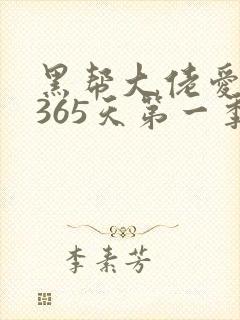 黑帮大佬爱
365天第一季
李素芳